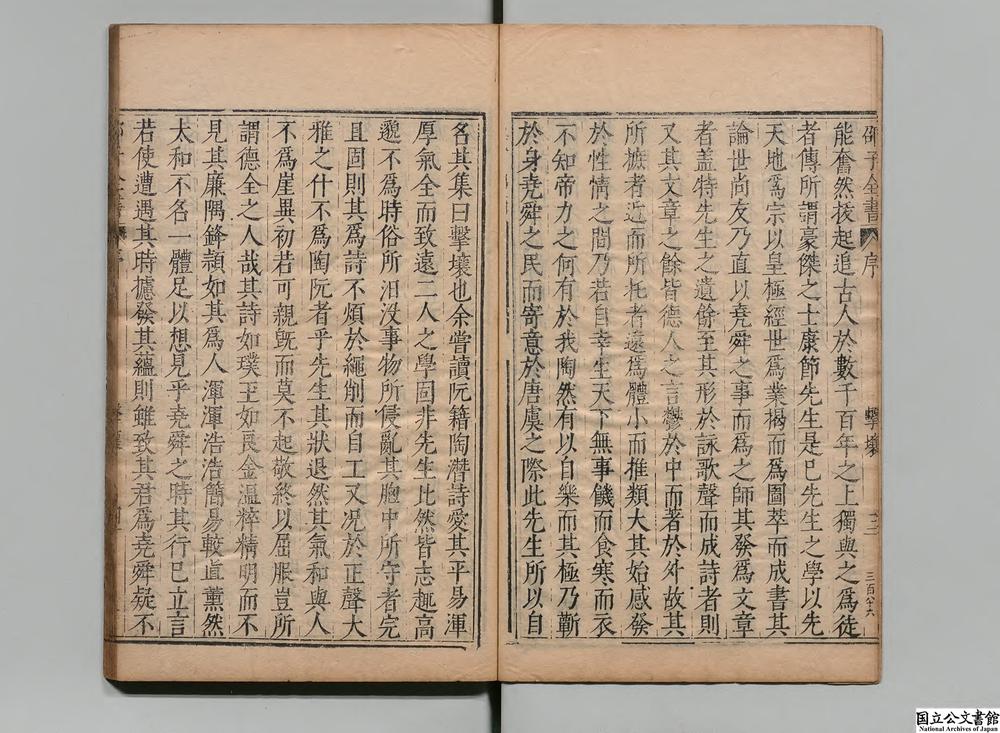 邵子全書
序
擊壤
三
三百卆六
能奮然援起追古人於數千百年之上獨與之爲徒
者傳所謂豪傑之士康節先生是已先生之學以先
天地爲宗以皇極經世爲業揭而爲圖萃而成書其
論世尚友乃直以堯舜之事而爲之師其發爲文章
者盖特先生之遺餘至其形於詠歌聲而成詩者則
又其文章之餘皆德人之言鬱於中而著於外故其
所摭者近而所托者遠爲體小而推類大其始感發
於性情之間乃若自幸生天下無事饑而食寒而衣
不知帝力之何有於我陶然有以自樂而其極乃蘄
於身堯舜之民而寄意於唐虞之際此先生所以自
名其集曰擊壤也余嘗讀阮籍陶潛詩愛其平易渾
厚氣全而致遠二人之學固非先生比然皆志趣高
邈不爲時俗所汨没事物所侵亂其胸中所守者完
且固則其爲詩不煩於繩削而自工又况於正聲大
雅之什不爲陶阮者乎先生其狀退然其氣和與人
不爲崖異初若可親既而莫不起敬終以屈服豈所
謂德全之人哉其詩如璞玉如良金溫粹精明而不
見其廉隅鋒頴如其爲人渾渾浩浩簡易較直薰然
太和不各一體足以想見乎堯舜之時其行已立言
若使遭遇其時攄發其蘊則雖致其君爲堯舜疑不
国立公文書館
National Archives of Japan